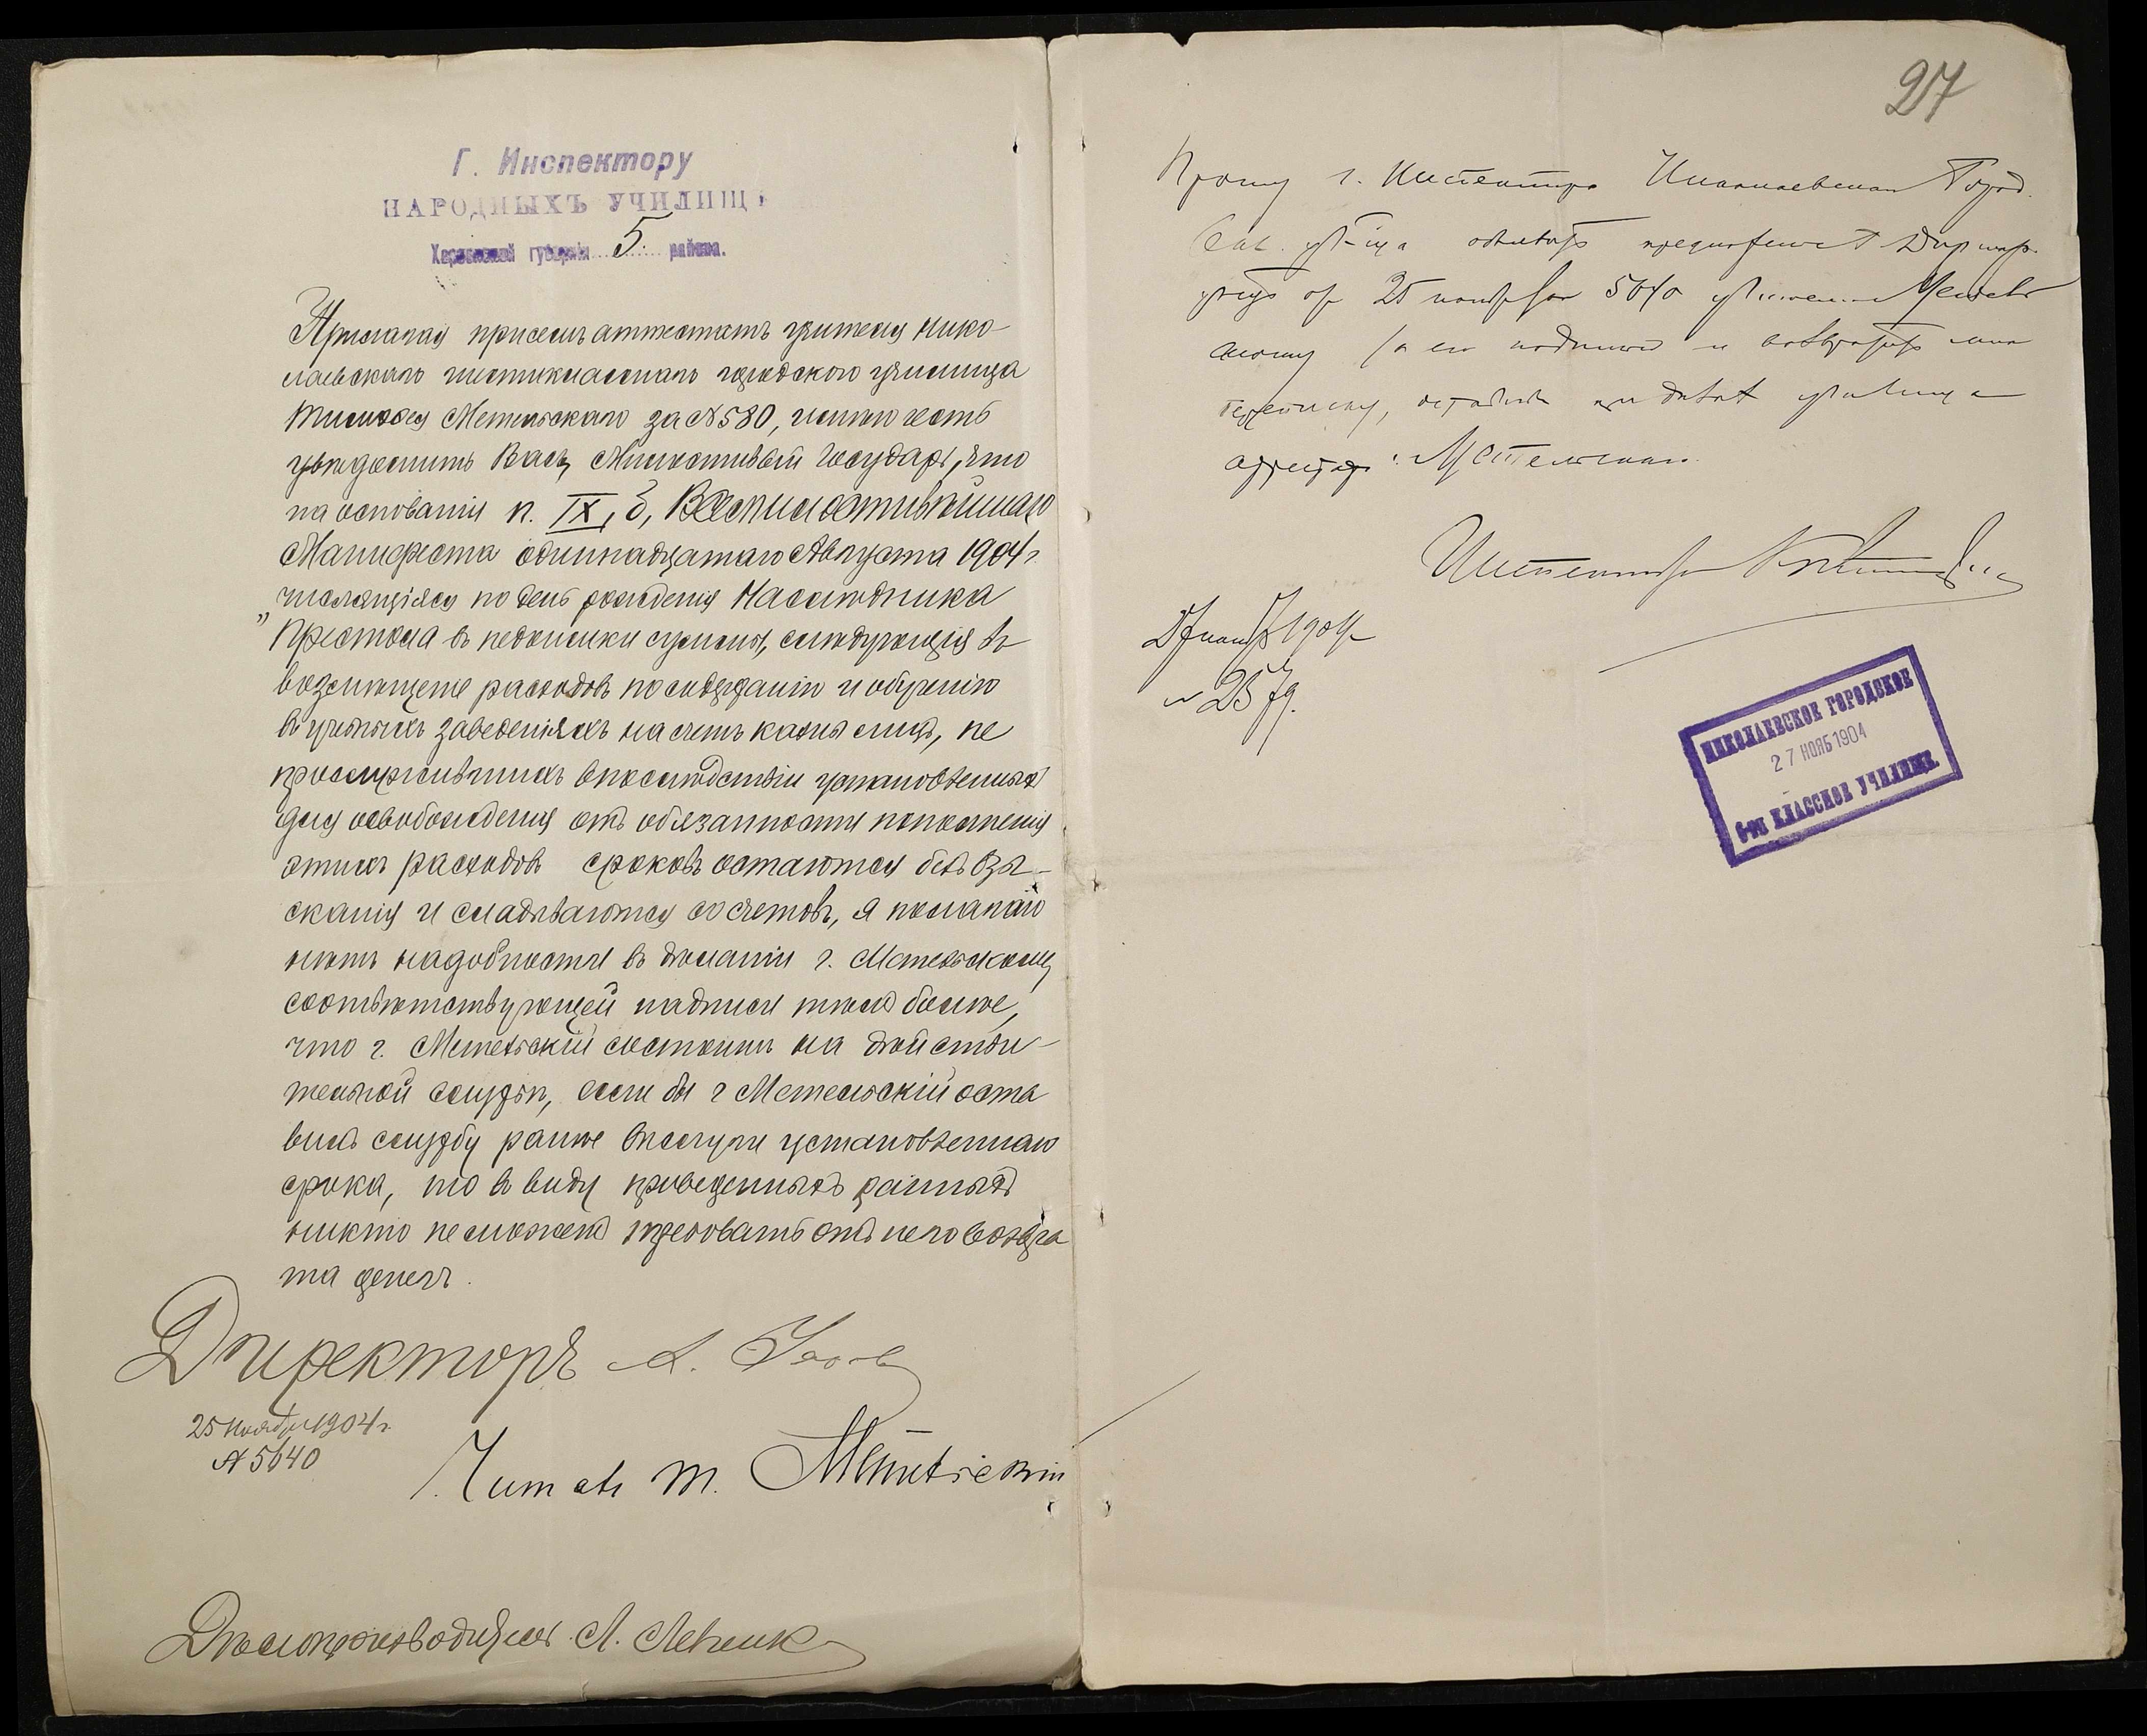 Г. Инспектору
НАРОДНЫХЪ УЧИЛИЩЪ
Херсонской губерніи 5 района.
Прилагая присемъ аттестатъ учителя Нико-
лаевскаго шестикласснаго городского училища
Тимофея Метельскаго за № 580, имѣю честь
увѣдомить Васъ, Милостивый Государь, что
на основаніи п. IX, д, Всемилостивѣйшаго
Манифеста одиннадцатаго Августа 1904 г.
„числящіяся по день рожденія Наслѣдника
Престола въ недоимки суммы, слѣдующія въ
возмѣщеніе расходовъ по содержанію и обученію
въ учебныхъ заведеніяхъ на счетъ казны лицъ, не
прослужившихъ впослѣдствіи установленныхъ
для освобожденія отъ обязанности пополненія
этихъ расходовъ сроковъ остаются безъ взы-
сканія и слагаются со счетовъ, я полагаю
нѣтъ надобности въ дѣланіи г. Метельскому
соотвѣтствующей надписи тѣмъ болѣе,
что г. Метельскій состоитъ на дѣйстви-
тельной службѣ, если бы г Метельскій оста
вилъ службу ранѣе выслуги установленнаго
срока, то въ виду приведенныхъ данныхъ
никто не можетъ требовать отъ него возвра
та денегъ.
Директоръ А.
25 Ноября 1904 г.
№ 5640
Читалъ Т. Метельскій
Дѣлопроизводитель А.
27
Прошу г. Инспектора Николаевскаго Город.
училища объявить предложеніе Директора
отъ 25 ноября 5640 учителю Метель
скому его подписью и возвратить мнѣ
переписку, оставивъ при дѣлахъ училища
аттестатъ г. Метельскаго.
Инспекторъ
27 нояб 1904 г.
№ 2579.
НИКОЛАЕВСКОЕ ГОРОДСКОЕ
27 НОЯБ 1904
6-ти КЛАССНОЕ УЧИЛИЩЕ.